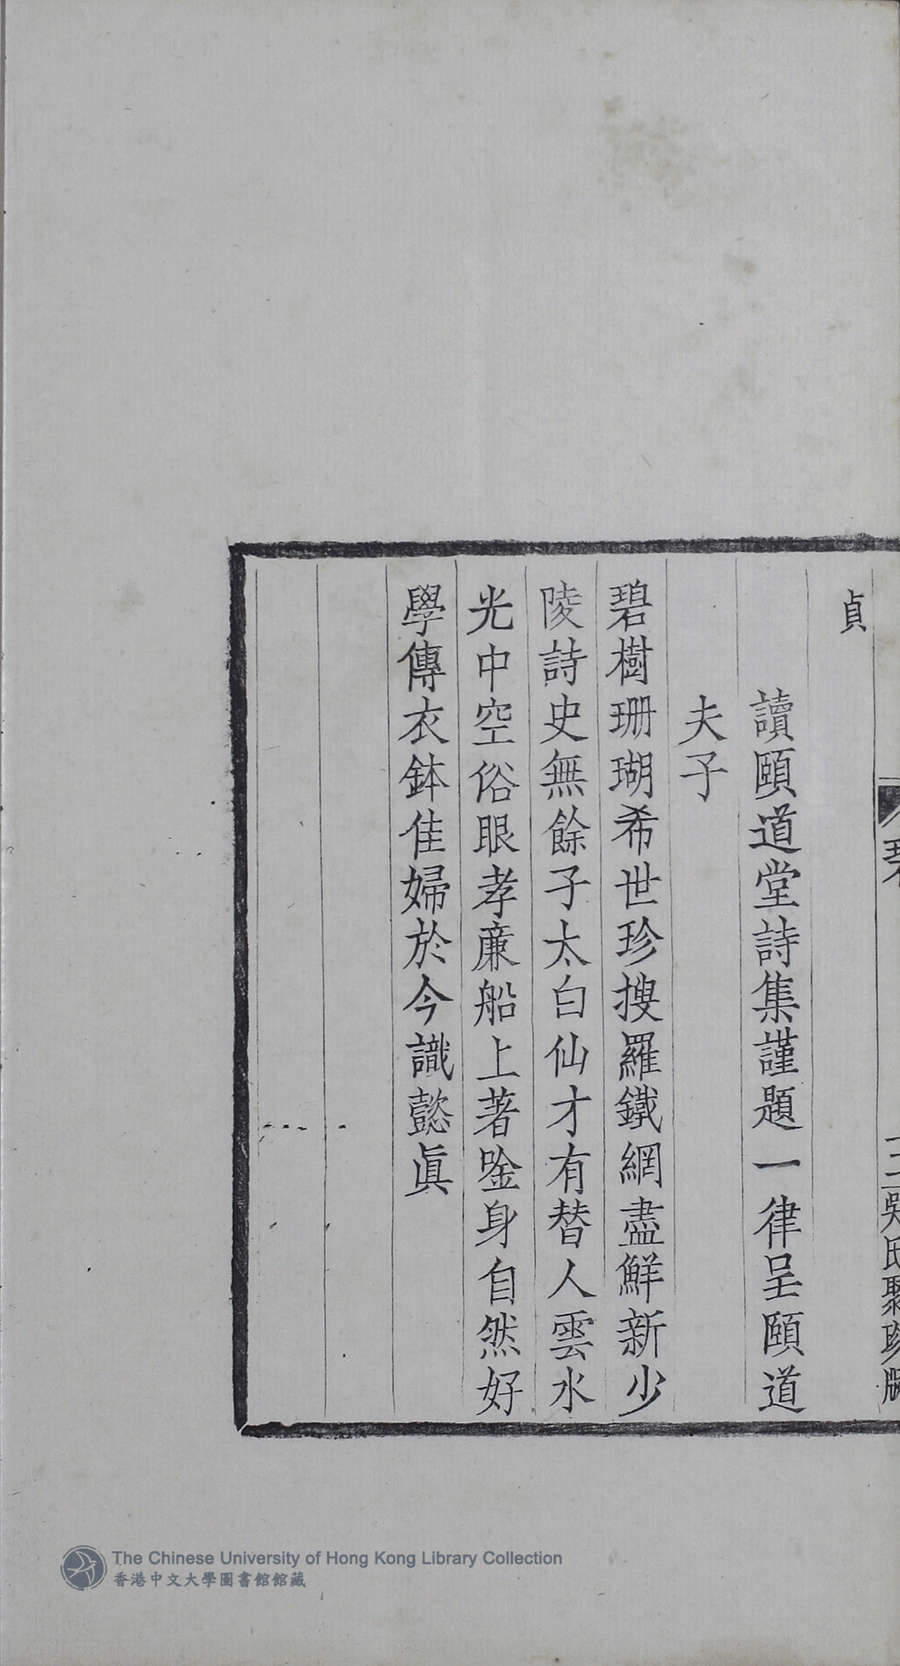 貞
讀頤道堂詩集謹題一律呈頤道
夫子
碧樹珊瑚希世珍搜羅鐵網盡鮮新少
陵詩史無餘子太白仙才有替人雲水
光中空俗眼孝廉船上著唫身自然好
學傳衣鉢佳婦於今識懿眞
吳氏聚珍
The Chinese University of Hong Kong Library Collection
香港中文大學圖書館館藏